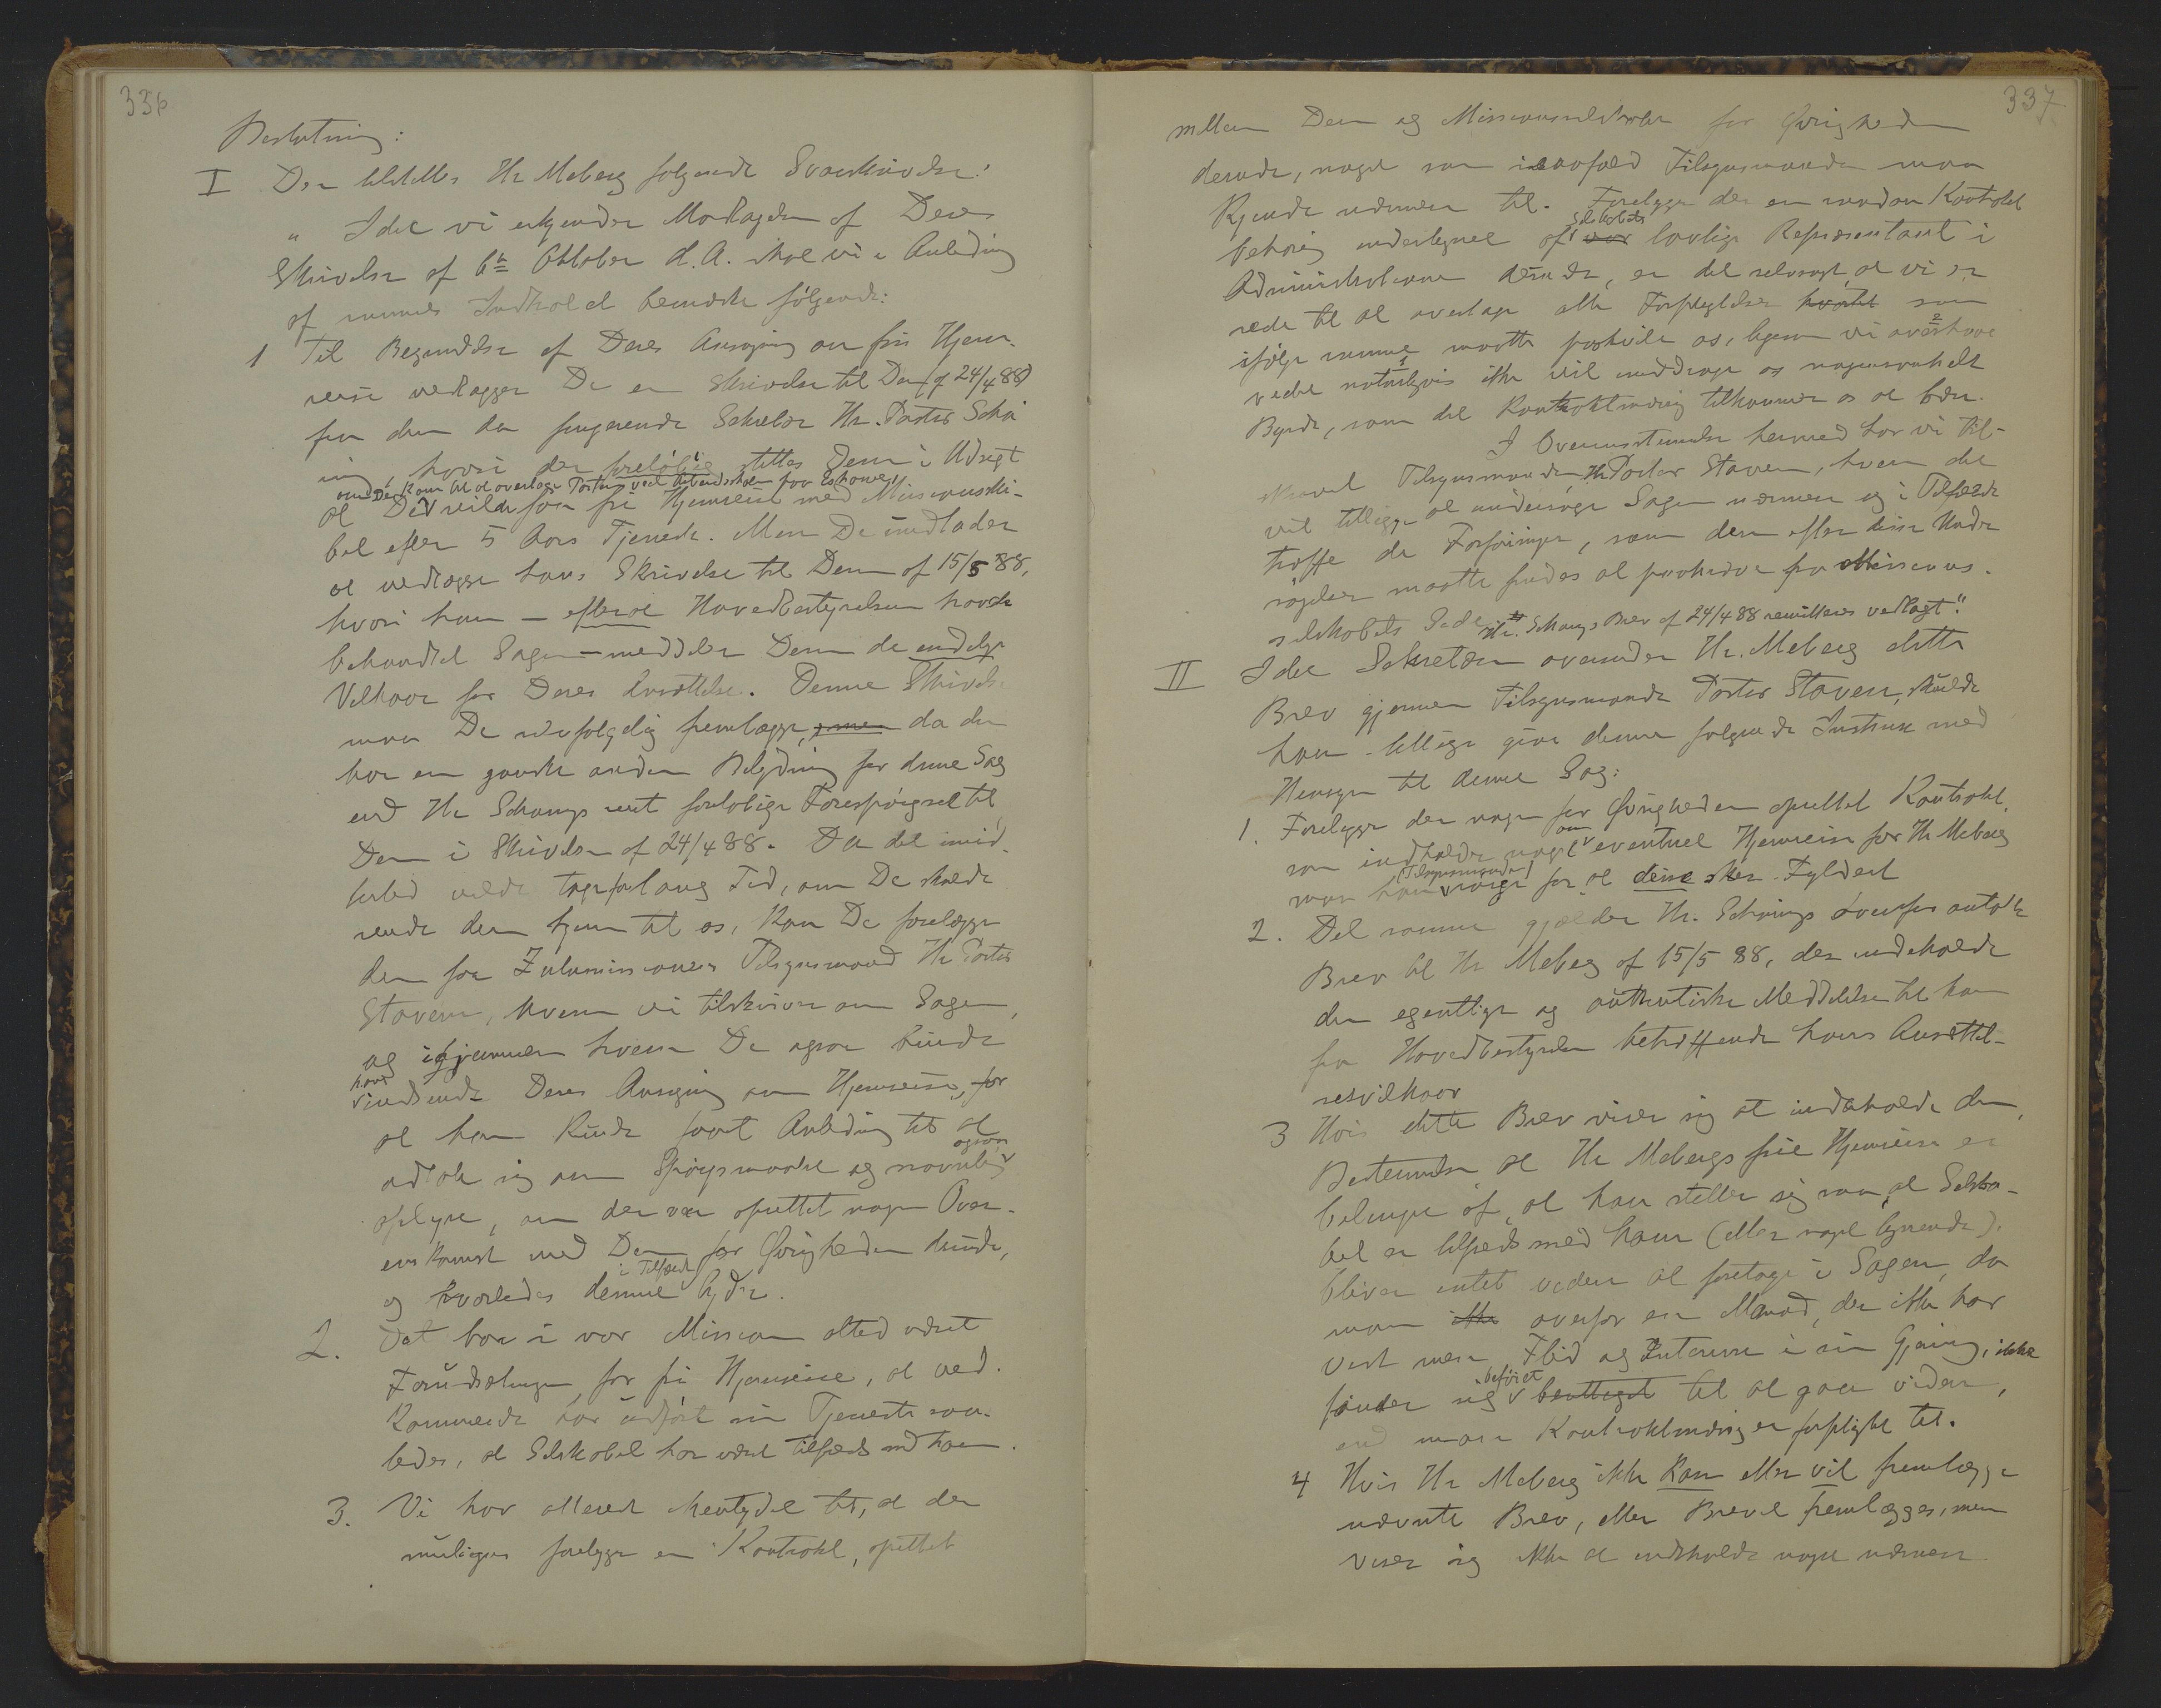 336
Beslutning:
I Der tilstilles Hr Meberg følgende Svarskrivelse:
" Idet vi erkjender Modtagelsen af Deres
Skrivelse af 6te Oktober d. A. skal vi i Anledning
af sammes Indhold bemærke følgende:
1 Til Begrundelse af Deres Ansøgning om fri Hjem-
reise vedlægger De en Skrivelse til Dem (af 24/4 88)
fra den da fungerende Sekretær Hr. Pastor Scha
ning, hvori der foreløbig stilles Dem i Udsigt
om De kom til at overtage Posten ved Arbeidsskolen paa Eshowe,
at De vilde faa fri Hjemreise med Missionsski-
bet efter 5 Aars Tjeneste. Men De undlader
at vedlægge hans Skrivelse til Dem af 15/5 88,
hvori han – efterat Hovedbestyrelsen havde
behandlet Sagen – meddeler Dem de endelige
Vilkaar for Deres Ansættelse. Denne Skrivelse
maa De selvfølgelig fremlægge, men da den
har en ganske anden Betydning for denne Sag
end Hr Schanings rent foreløbige Forespørgsel til
Dem i Skrivelsen af 24/4 88. Da det imid-
lertid vilde tage for lang Tid, om De skulde
sende den hjem til os, kan De forelægge
den for Zulumissionens Tilsynsmand Hr Pastor
Stavem, hvem vi tilskriver om Sagen,
og igjennem hvem De ogsaa burde
have
indsendt Deres Ansøgning om Hjemreise, for
at han kunde faaet Anledning til at
udtale sig om Spørgsmaalet og navnlig ogsaa
oplyse, om der var oprettet nogen Over-
enskomst med Dem for Øvrigheden derude,
og hvorledes denne i Tilfælde lyder.
2. Det har i vor Mission altid været
Forudsætningen for fri Hjemreise, at ved-
kommende har udført sin Tjeneste saa-
ledes, at Selskabet har været tilfreds med ham.
3. Vi har allerede hentydet til, at der
muligens foreligger en Kontrakt, oprettet
337.
mellem Dem og Missionsselskabet for Øvrigheden
derude, noget som isaafald Tilsynsmanden maa
kjende nærmere til. Foreligger der en saadan Kontrakt
behørig undertegnet af Selskabets vor lovlige Repræsentant i
Administrationen derude, er det selvsagt, at vi er
rede til at overtage alle Forpligtelser hvortil som
ifølge samme maatte paahvile os, ligesom vi overhove
vedet naturligvis ikke vil unddrage os nogensomhelst
Byrde, som det kontraktmæssig tilkommer os at bære.
I Overensstemmelse hermed har vi til-
skrevet Tilsynsmanden Hr Pastor Stavem, hvem det
vil tilligge at undersøge Sagen nærmere og i Tilfælde
træffe de Forføininger, som der efter disse Under
søgelser maatte findes at paakræve fra Missions-
selskabets Side. Hr. Schanings Brev af 24/4 88 remitteres vedlagt."
II Idet Sekretæren oversender Hr. Meberg dette
Brev gjennem Tilsynsmanden Pastor Stavem, skulde
han tillige give denne følgende Instrux med
Hensyn til denne Sag:
1. Foreligger der nogen for Øvrigheden oprettet Kontrakt,
som indholder noget om eventuel Hjemreise for Hr Meberg
maa han (Tilsynsmanden) sørge for, at denne sker Fyldest
2. Det samme gjælder Hr. Schanings ovenfor antydede
Brev til Hr Meberg af 15/5 88, der indeholder
den egentlige og authentiske Meddelelse til ham
fra Hovedbestyrelsen betræffende hans Ansættel-
sesvilkaar
3 Hvis dette Brev viser sig at indeholde den
Bestemmelse, at Hr Mebergs frie Hjemreise er
betinget af, at han steller sig saa, at Selska-
bet er tilfreds med ham (eller noget lignende).
bliver intet videre at foretage i Sagen, da
man ikke overfor en Mand, der ikke har
vist mere Flid og Interesse i sin Gjerning, ikke
finder sig beføiet berettiget til at gaa videre,
end man kontraktmæssig er forpligtet til.
4 Hvis Hr Meberg ikke kan eller vil fremlægge
nævnte Brev, eller Brevet fremlægges, men
viser sig ikke at indeholde noget nærmere